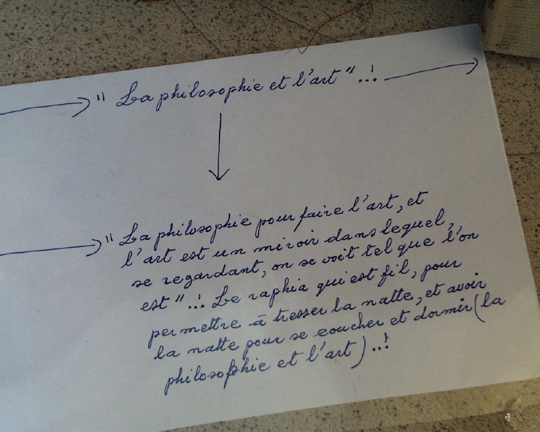 " La philosophie et l'art "..!
" La philosophie pour faire l'art, et
l'art est un miroir dans lequel,
se regardant, on se voit tel que l'on
est "..! Le raphia qui est fil, pour
permettre à tresser la natte, et avoir
la natte pour se coucher et dormir (la
philosophie et l'art)..!